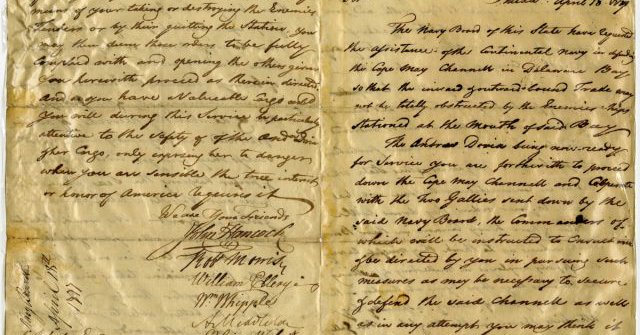 means of your taking or destroying the Enemies
Tenders or by their quitting the Station, you
may then deem these orders to be fully
Complied with and opening the others given
You herewith proceed as therein directed
and as you have a Valuable Cargo on board
You will during this Service be particularly
attentive to the Safety of the And Doria
& her Cargo, only exposing her to dangers
when you are sensible the true interest
or honor of America requires it
We are Your friends
John Hancock
Robt Morris
William Ellery
Wm Whipple
A Middleton
April 18th
1777
Philada April 18 1777
The Navy Board of this State have required
the assistance of the Continental Navy in defending
the Cape May Channell in Delaware Bay
so that the inward & outward bound Trade may
not be totally obstructed by the Enemies Ships
Stationed at the Mouth of said Bay
The Andrea Doria being now ready
for Service you are forthwith to proceed
down the Cape May Channell and Cooperate
with the two Gallies sent down by the
said Navy Board, the Commanders of
which will be instructed to Consult and
be directed by you in pursuing such
measures as may be necessary to secure
& defend the said Channell as well
as in any attempt you may think it